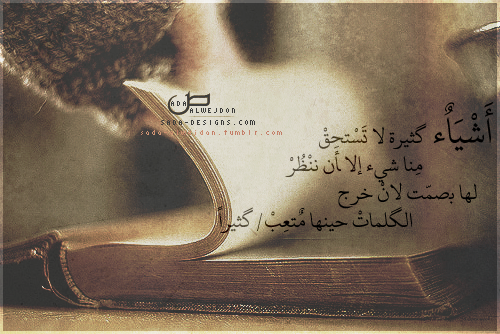 ص
SADA
ALWEJDON
sada-designs.com
sada-alwejdan.tumblr.com
أَشْيَاٌء گثيرة لا تَسْتحِقْ
مِنا شيء إلا أن ننْظُرْ
لها بصمّت لانْ خرج
الگلماتْ حينها مٌتعِبْ/ گثيراً